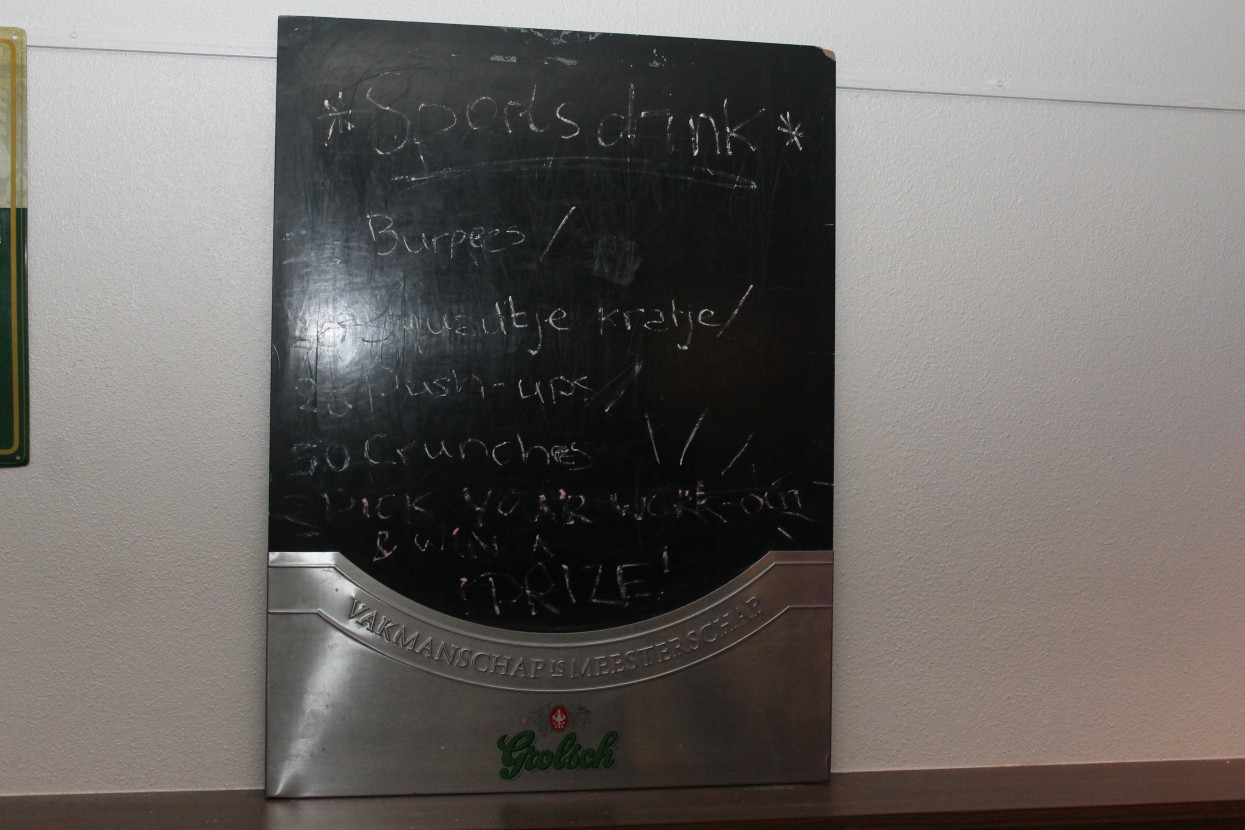 *Sportsdrink*
Burpees /
kratje /
Push-ups /
50 Crunches \ / /
PICK YOUR WORK-OUT
& WIN A
!PRIZE!
VAKMANSCHAP IS MEESTERSCHAP
Grolsch